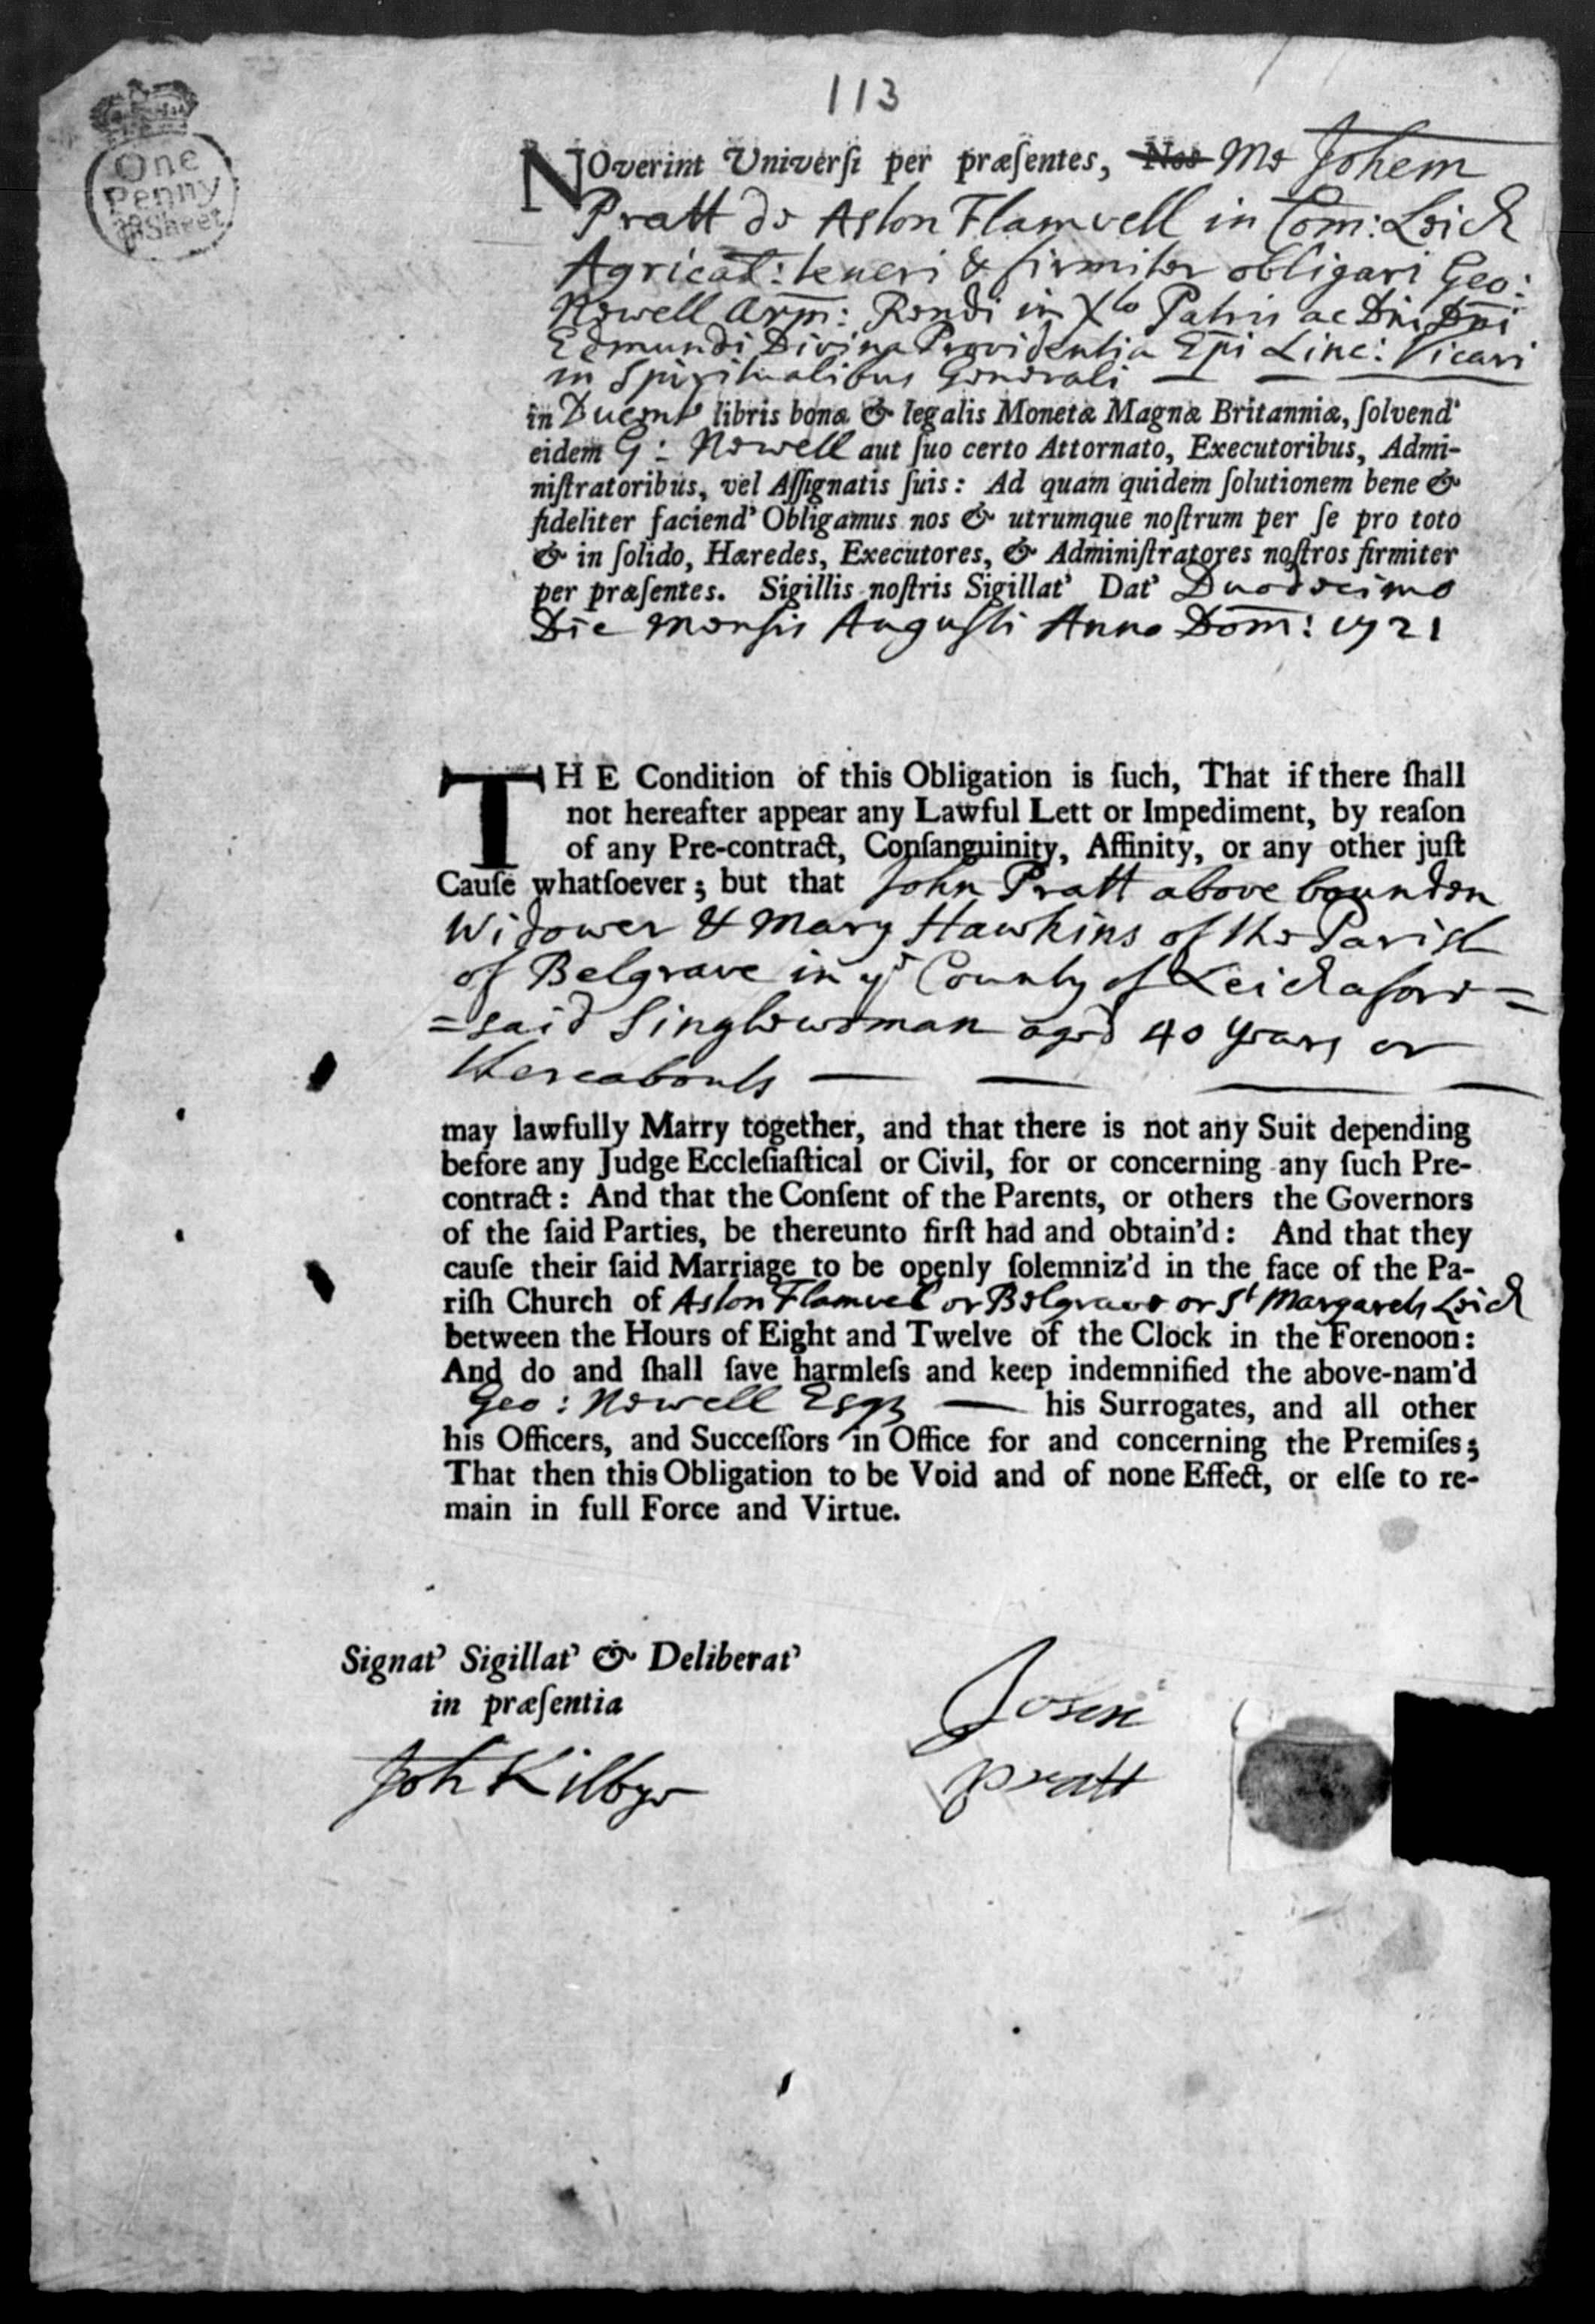 113
One
Penny
Sheet
NOverint Universi per præsentes, Nos Me Johem
Pratt de Aston Flamvell in Com: Leic
Agricol: teneri & firmiter obligari Geo:
Newell Arm: Rendi in Xto Patris ac Dni Dni
Edmundi Divina Providentia Epi Linc: Vicari
in Spiritualibus Generali
in Ducent libris bonæ & legalis Monetæ Magnæ Britanniæ, ſolvend'
eidem G: Newell aut ſuo certo Attornato, Executoribus, Admi-
niſtratoribus, vel Aſſignatis ſuis: Ad quam quidem ſolutionem bene &
fideliter faciend' Obligamus nos & utrumque noſtrum per ſe pro toto
& in ſolido, Hæredes, Executores, & Adminiſtratores noſtros firmiter
per præſentes. Sigillis noſtris Sigillat' Dat' Duodecimo
Die Mensis Augusti Anno Dom: 1721
THE Condition of this Obligation is ſuch, That if there ſhall
not hereafter appear any Lawful Lett or Impediment, by reaſon
of any Pre-contract, Conſanguinity, Affinity, or any other juſt
Cauſe whatſoever; but that John Pratt above bounden
Widower & Mary Hawkins of the Parish
of Belgrave in ye County of Leic afore=
=said Singlewoman aged 40 years or
thereabouts
may lawfully Marry together, and that there is not any Suit depending
before any Judge Eccleſiaſtical or Civil, for or concerning any ſuch Pre-
contract: And that the Conſent of the Parents, or others the Governors
of the ſaid Parties, be thereunto firſt had and obtain'd: And that they
cauſe their ſaid Marriage to be openly ſolemniz'd in the face of the Pa-
riſh Church of Aston Flamvel or Belgrave or St Margarets Leic
between the Hours of Eight and Twelve of the Clock in the Forenoon:
And do and ſhall ſave harmleſs and keep indemnified the above-nam'd
Geo: Newell Esqr his Surrogates, and all other
his Officers, and Succeſſors in Office for and concerning the Premiſes;
That then this Obligation to be Void and of none Effect, or elſe to re-
main in full Force and Virtue.
Signat' Sigillat' & Deliberat'
in præſentia
Joh Kilbye
Pratt